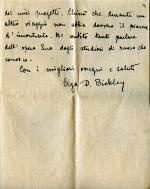 dei miei progetti. Chissà che durante un
altro viaggio non abbia davvero il piacere
d'incontrarla. Ho sentito tanto parlare
dell'opera Sua dagli studiosi di russo che
conosco.
Con i migliori ossequi e saluti
Olga D. Bickley